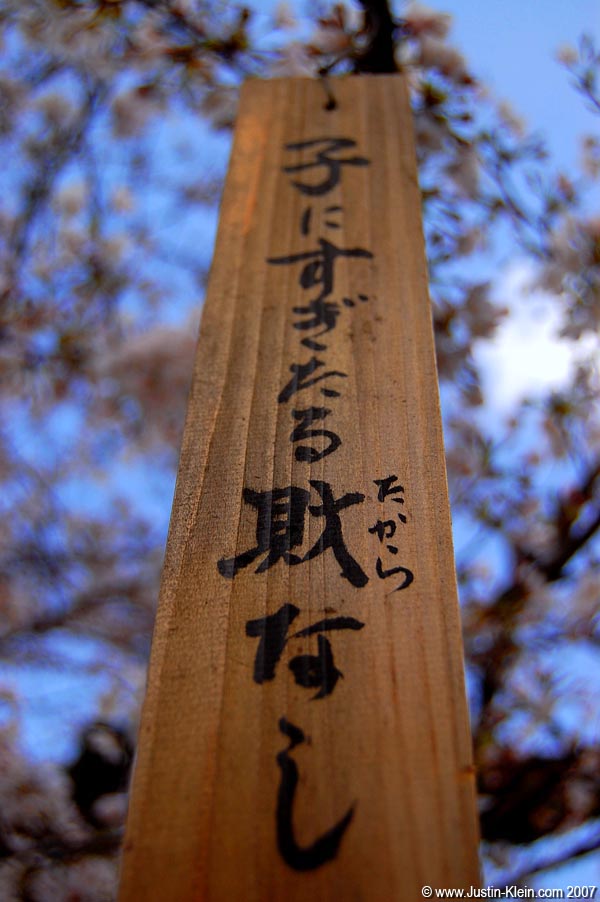 子にすぎたる財なし
たから
© www.Justin-Klein.com 2007